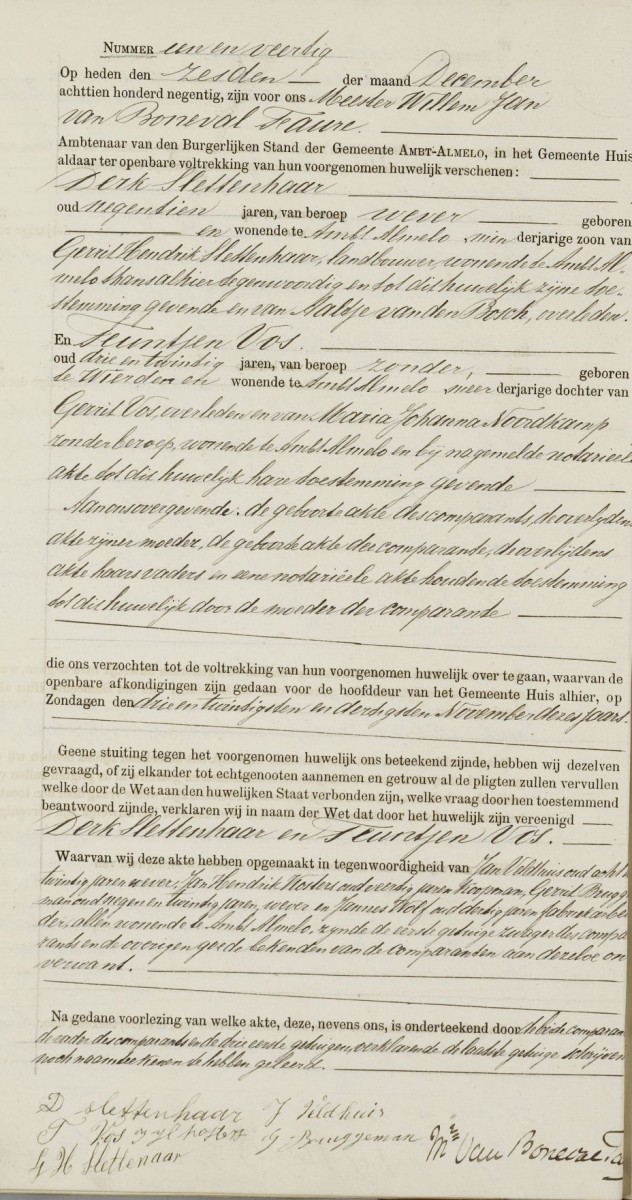 NUMMER een en veertig
Op heden den zesden der maand December
achttien honderd negentig, zijn voor ons Meester Willem Jan
van Boneval Faure.
Ambtenaar van den Burgerlijken Stand der Gemeente AMBT-ALMELO, in het Gemeente Huis
aldaar ter openbare voltrekking van hun voorgenomen huwelijk verschenen:
Derk Slettenhaar
oud negentien jaren, van beroep wever geboren
en wonende te Ambt Almelo, min derjarige zoon van
Gerrit Hendrik Slettenhaar, landbouwer, wonende te Ambt Al-
melo thans alhier tegenwoordig en tot dit huwelijk zijne toe-
stemming gevende en van Aaltje van den Bosch, overleden.
En Teuntjen Vos.
oud drie en twintig jaren, van beroep zonder, geboren
te Wierden en wonende te Ambt Almelo, meer derjarige dochter van
Gerrit Vos, overleden en van Maria Johanna Noordkamp
zonder beroep, wonende te Ambt Almelo en bij nagemelde notarieele
akte tot dit huwelijk hare toestemming gevende
Aan ons overgevende: de geboorte akte des comparants, de overlijdens
akte zijner moeder, de geboorte akte der comparante, de overlijdens
akte haars vaders en eene notariëele akte houdende toestemming
tot dit huwelijk door de moeder der comparante
die ons verzochten tot de voltrekking van hun voorgenomen huwelijk over te gaan, waarvan de
openbare afkondigingen zijn gedaan voor de hoofddeur van het Gemeente Huis alhier, op
Zondagen den drie en twintigsten en dertigsten November dezes jaars.
Geene stuiting tegen het voorgenomen huwelijk ons beteekend zijnde, hebben wij dezelven
gevraagd, of zij elkander tot echtgenooten aannemen en getrouw al de pligten zullen vervullen
welke door de Wet aan den huwelijken Staat verbonden zijn, welke vraag door hen toestemmend
beantwoord zijnde, verklaren wij in naam der Wet dat door het huwelijk zijn vereenigd
Derk Slettenhaar en Teuntjen Vos.
Waarvan wij deze akte hebben opgemaakt in tegenwoordigheid van Jan Veldhuis oud acht en
twintig jaren wever, Jan Hendrik Kosters oud veertig jaren Koopman, Gerrit Brugge
man oud negen en twintig jaren, wever en Jannes Wolf oud dertig jaren fabriek arbei
der, allen wonende te Ambt Almelo, zijnde de eerste getuige zwager des compa
rants en de overigen goede bekenden van de comparanten aan dezelve on
verwant.
Na gedane voorlezing van welke akte, deze, nevens ons, is onderteekend door de beide comparan
de vader des comparants en de drie eerste getuigen, verklarende de laatste getuige schrijven
noch naamteekenen te hebben geleerd.
D Slettenhaar J Veldhuis
T Vos J H Kosters G Bruggeman
G H Slettenaar Mr Van Boneval Fa